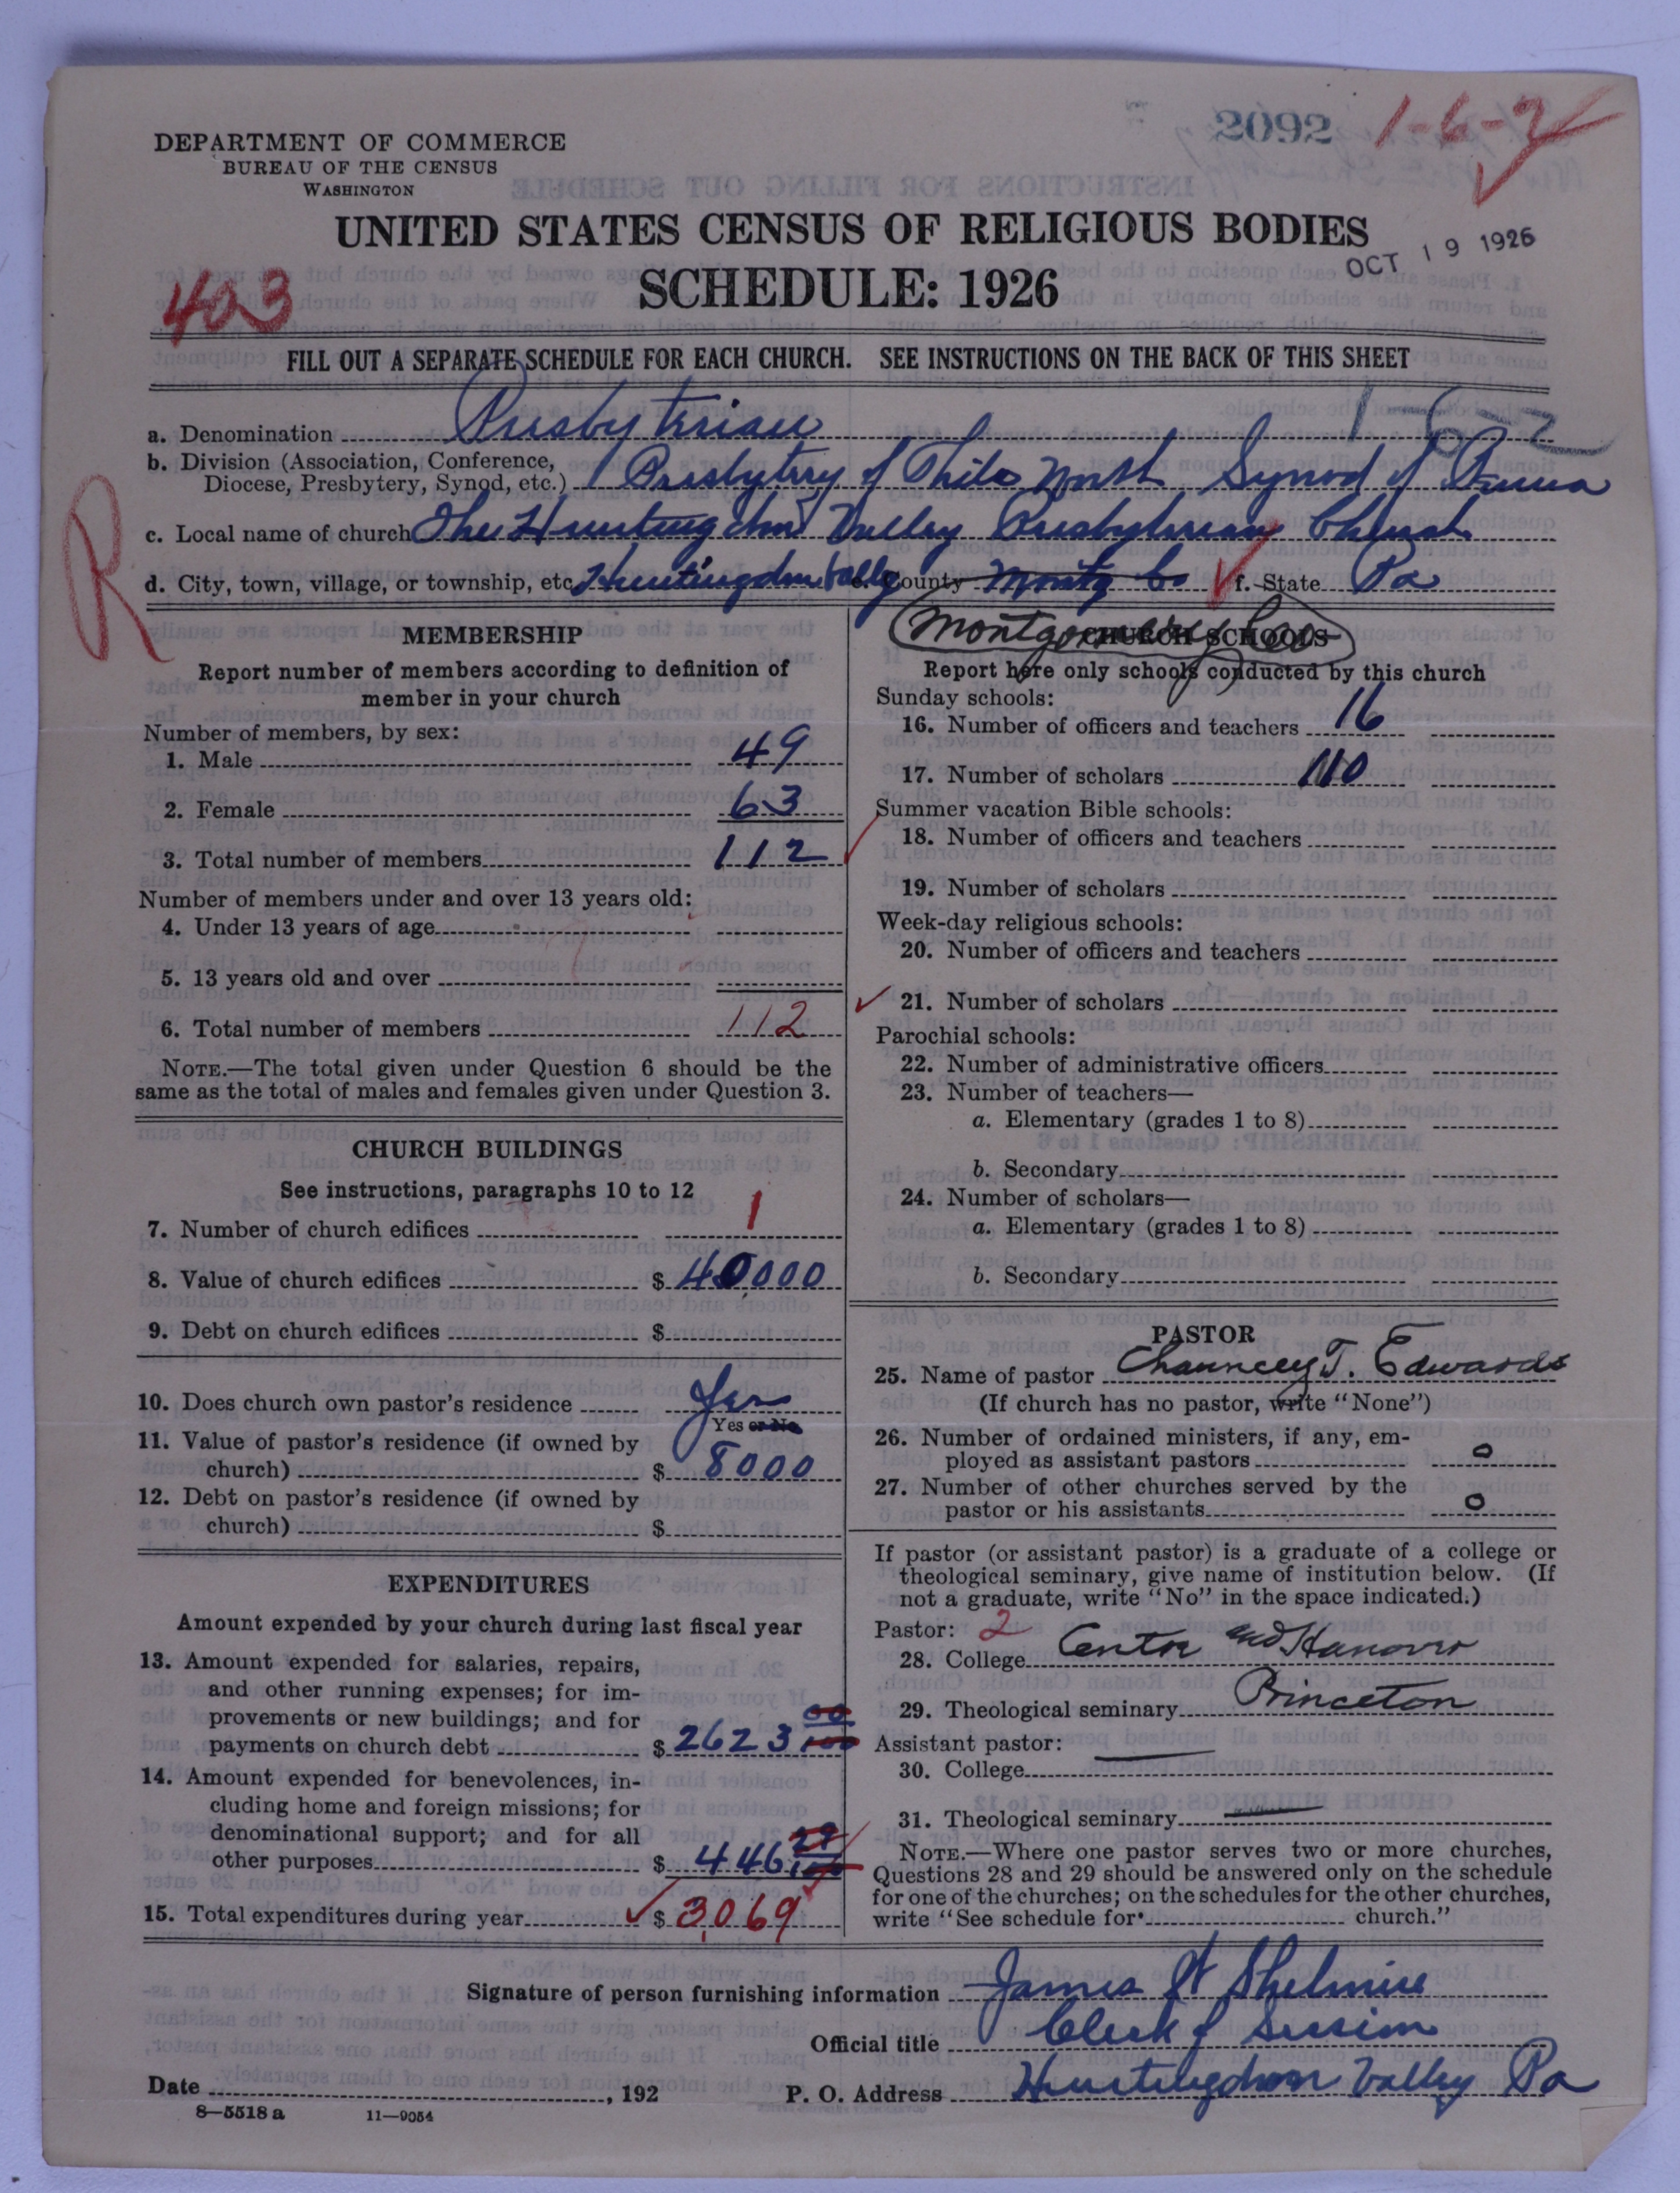 DEPARTMENT OF COMMERCE
BUREAU OF THE CENSUS
WASHINGTON
2092
1-6-2
UNITED STATES CENSUS OF RELIGIOUS BODIES
OCT 19 1926
SCHEDULE: 1926
403
FILL OUT A SEPARATE SCHEDULE FOR EACH CHURCH. SEE INSTRUCTIONS ON THE BACK OF THIS SHEET
a. Denomination Presbyterian
b. Division (Association, Conference, Diocese, Presbytery, Synod, etc.) Presbytery of Phila North Synod of Penna
R
c. Local name of church The Huntingdon Valley Presbyterian Church
d. City, town, village, or township, etc. Huntingdon Valley e. County Montg Co f. State Pa
Montgomery Co
MEMBERSHIP
Report number of members according to definition of
member in your church
Number of members, by sex:
1. Male 49
2. Female 63
3. Total number of members 112
Number of members under and over 13 years old:
4. Under 13 years of age
5. 13 years old and over
6. Total number of members 112
NOTE.—The total given under Question 6 should be the
same as the total of males and females given under Question 3.
CHURCH BUILDINGS
See instructions, paragraphs 10 to 12
7. Number of church edifices 1
8. Value of church edifices $ 40000
9. Debt on church edifices $
10. Does church own pastor's residence Yes
Yes or No
11. Value of pastor's residence (if owned by
church) $ 8000
12. Debt on pastor's residence (if owned by
church) $
EXPENDITURES
Amount expended by your church during last fiscal year
13. Amount expended for salaries, repairs,
and other running expenses; for im-
provements or new buildings; and for
payments on church debt $ 2623 00/100
14. Amount expended for benevolences, in-
cluding home and foreign missions; for
denominational support; and for all
other purposes $ 446 /100
15. Total expenditures during year $ 3,069
CHURCH SCHOOLS
Report here only schools conducted by this church
Sunday schools:
16. Number of officers and teachers 16
17. Number of scholars 110
Summer vacation Bible schools:
18. Number of officers and teachers
19. Number of scholars
Week-day religious schools:
20. Number of officers and teachers
21. Number of scholars
Parochial schools:
22. Number of administrative officers
23. Number of teachers—
a. Elementary (grades 1 to 8)
b. Secondary
24. Number of scholars—
a. Elementary (grades 1 to 8)
b. Secondary
PASTOR
25. Name of pastor Chauncey T. Edwards
(If church has no pastor, write "None")
26. Number of ordained ministers, if any, em-
ployed as assistant pastors 0
27. Number of other churches served by the
pastor or his assistants 0
If pastor (or assistant pastor) is a graduate of a college or
theological seminary, give name of institution below. (If
not a graduate, write "No" in the space indicated.)
Pastor: 2
28. College Centre and Hanover
29. Theological seminary Princeton
Assistant pastor:
30. College
31. Theological seminary
NOTE.—Where one pastor serves two or more churches,
Questions 28 and 29 should be answered only on the schedule
for one of the churches; on the schedules for the other churches,
write "See schedule for church."
Signature of person furnishing information James H Shelmire
Official title Clerk of Session
Date , 192 P. O. Address Huntingdon Valley Pa
8—5518 a 11—9054